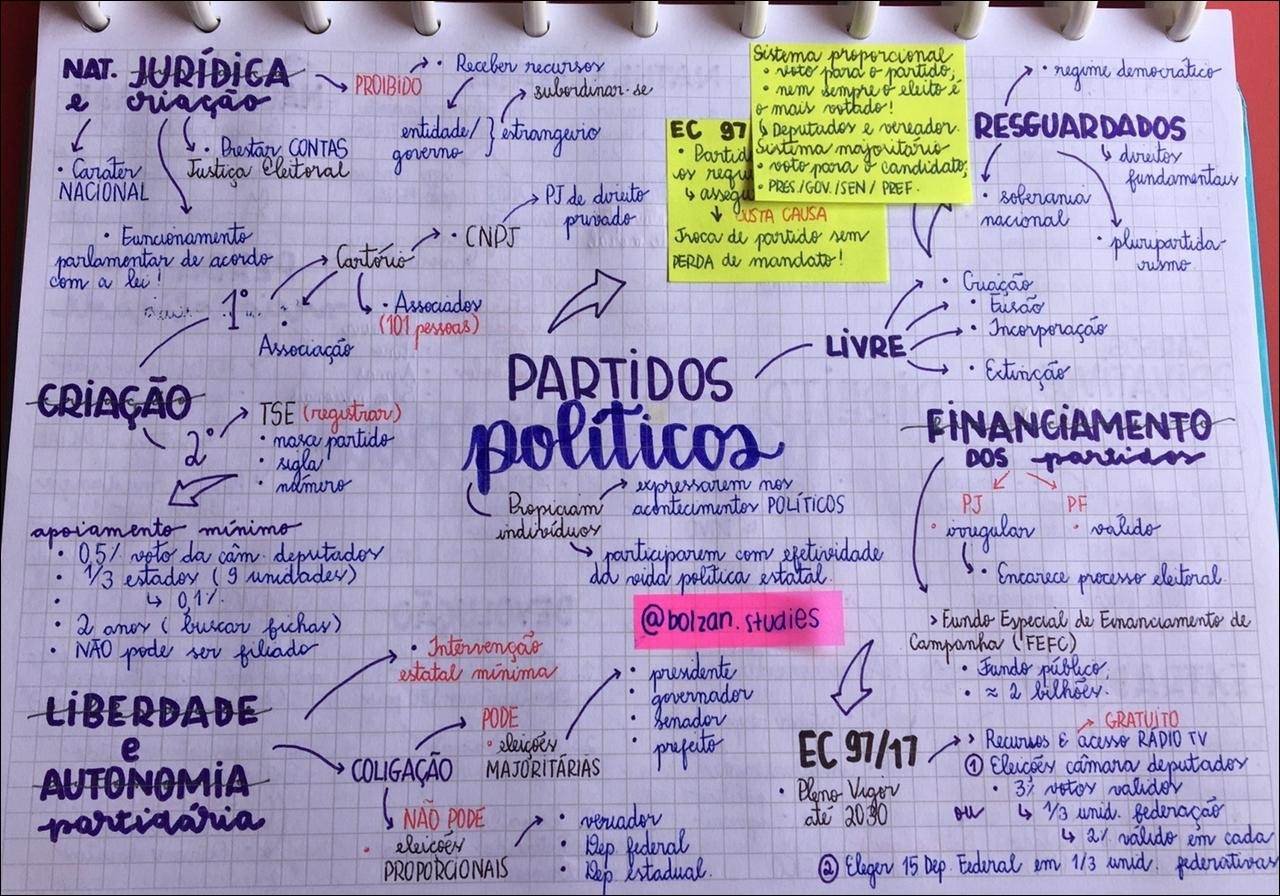 NAT. JURÍDICA
e criação
PROIBIDO
• Receber recursos
subordinar-se
entidade/
governo
estrangeiro
• Caráter
NACIONAL
• Prestar CONTAS
Justiça Eleitoral
• Funcionamento
parlamentar de acordo
com a lei!
CRIAÇÃO
1º
• Associação
Cartório
• CNPJ
• PJ de direito
privado
• Associados
(101 pessoas)
2º
TSE (registrar)
• nasce partido
• sigla
• número
apoiamento mínimo
• 0,5% voto da câm. deputados
• 1/3 estados (9 unidades)
• ↳ 0,1%
• 2 anos (buscar fichas)
• NÃO pode ser filiado
LIBERDADE
e
AUTONOMIA
partidária
• Intervenção
estatal mínima
COLIGAÇÃO
PODE
• eleições
MAJORITÁRIAS
• presidente
• governador
• senador
• prefeito
NÃO PODE
• eleições
PROPORCIONAIS
• vereador
• Dep. federal
• Dep. estadual
PARTIDOS
políticos
Propiciam
indivíduos
• expressarem nos
acontecimentos POLÍTICOS
• participarem com efetividade
da vida política estatal.
@bolzan.studies
EC 97
• Partid
os requ
↳ assegu
JUSTA CAUSA
Troca de partido sem
PERDA de mandato!
Sistema proporcional
• voto para o partido;
• nem sempre o eleito é
o mais votado!
↳ Deputados e vereador.
Sistema majoritário
• voto para o candidato;
• PRES./GOV./SEN/ PREF.
RESGUARDADOS
• regime democrático
• direitos
fundamentais
• soberania
nacional
• pluripartida-
rismo
LIVRE
• Criação
• Fusão
• Incorporação
• Extinção
FINANCIAMENTO
DOS partidos
PJ
• irregular
PF
• válido
• Encarece processo eleitoral.
> Fundo Especial de Financiamento de
Campanha (FEFC)
• Fundo público;
• ≈ 2 bilhões.
EC 97/17
• Pleno Vigor
até 2030
GRATUITO
> Recursos E acesso RÁDIO TV
① Eleições câmara deputados
• 3% votos válidos
ou ↳ 1/3 unid. federação
↳ 2% válido em cada
② Eleger 15 Dep. Federal em 1/3 unid. federativas